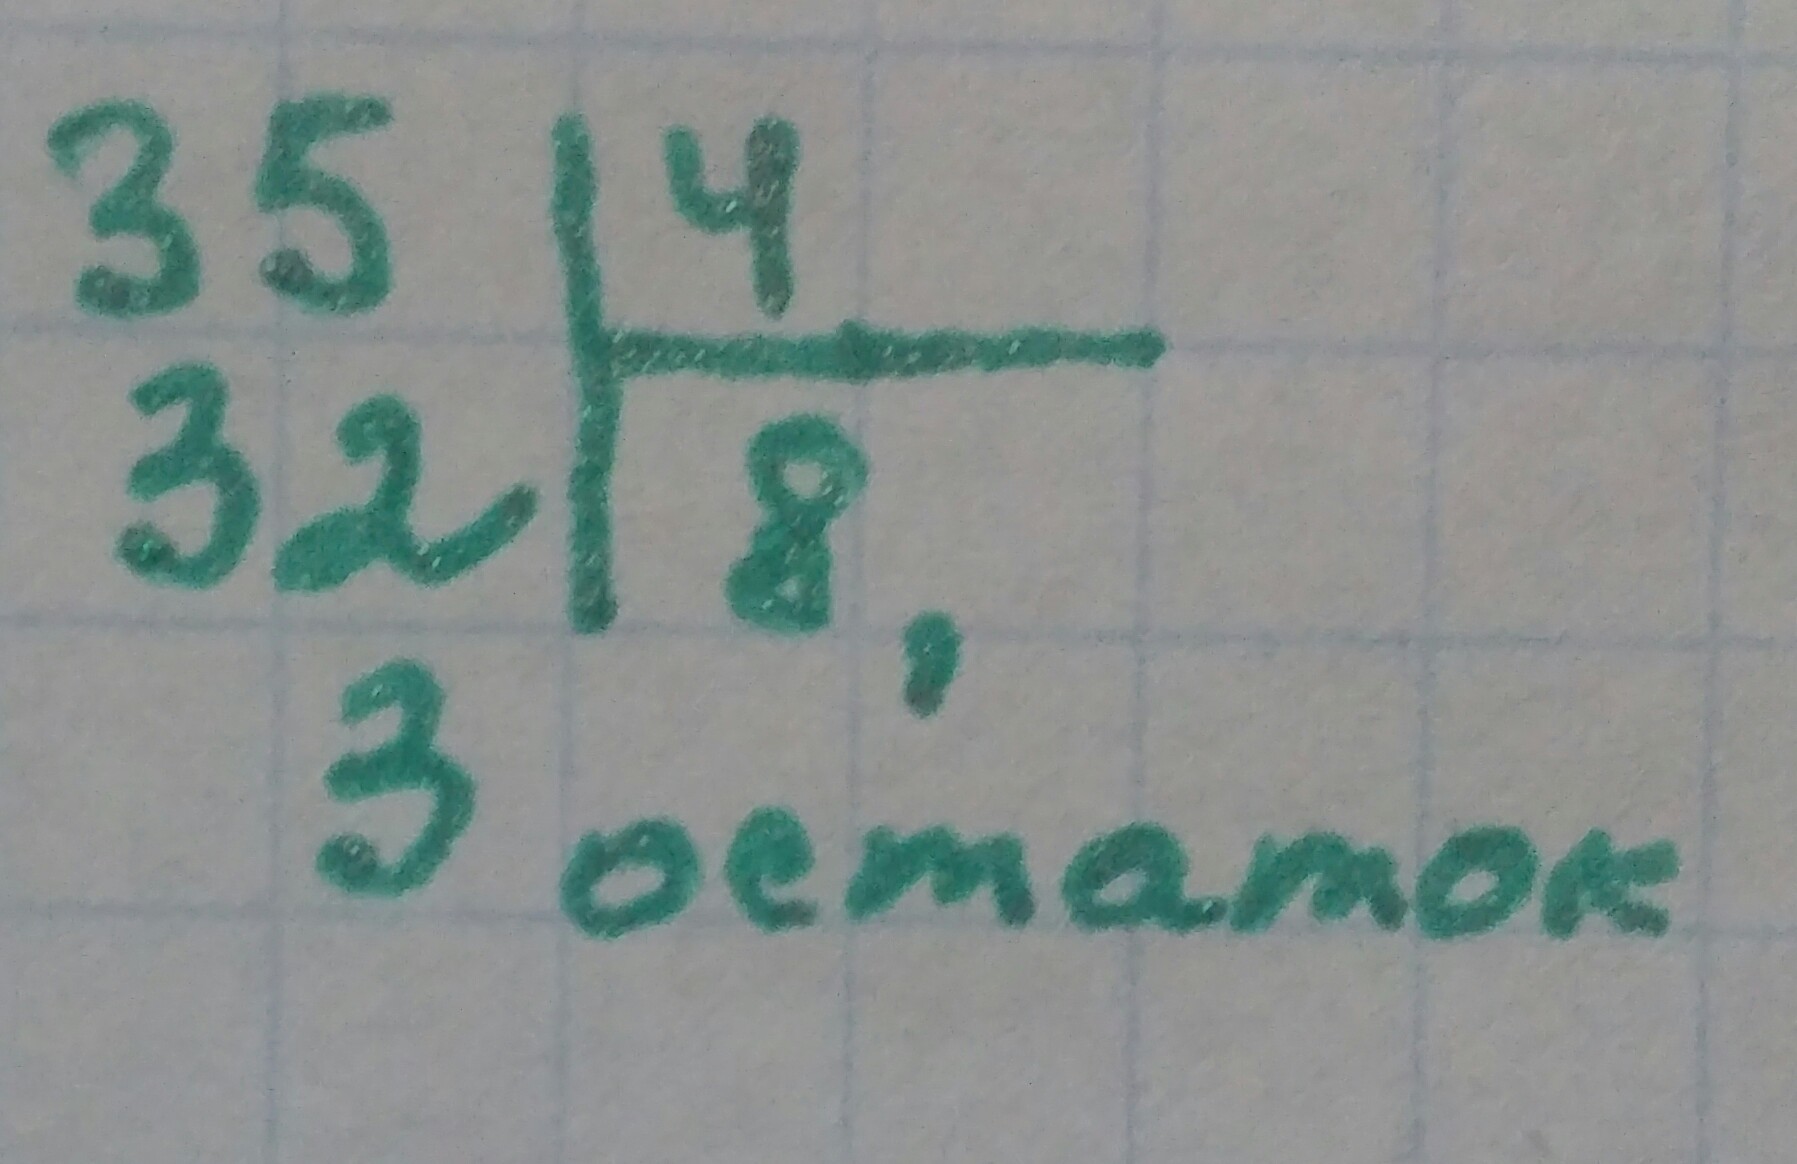 35 4
32 8,
3 остаток